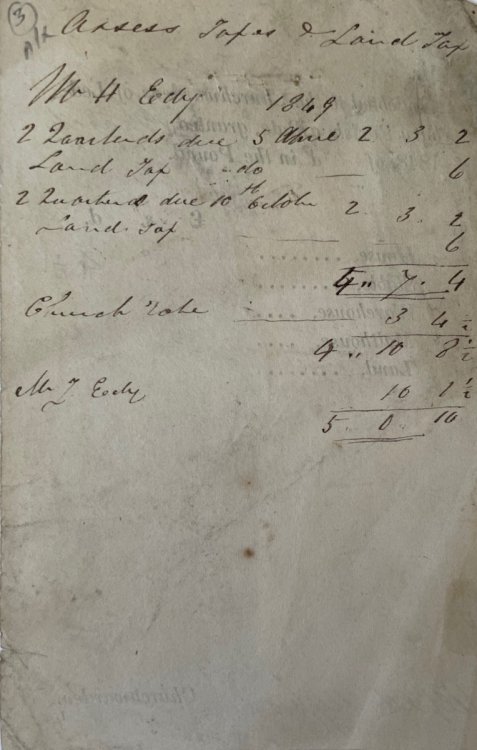 3
Assess Taxes & Land Tax
Mr H Eedy 1849
2 Quarterds due 5 April 2 3 2
Land Tax do 6
2 Quarterd due 10th October 2. 3. 2
Land. Tax 6
4 " 7. 4
Church rate 3 4 ½
4 " 10 8 ½
Mr J Eedy 10 1 ½
5. 0. 10
Churchwarden
House
Land